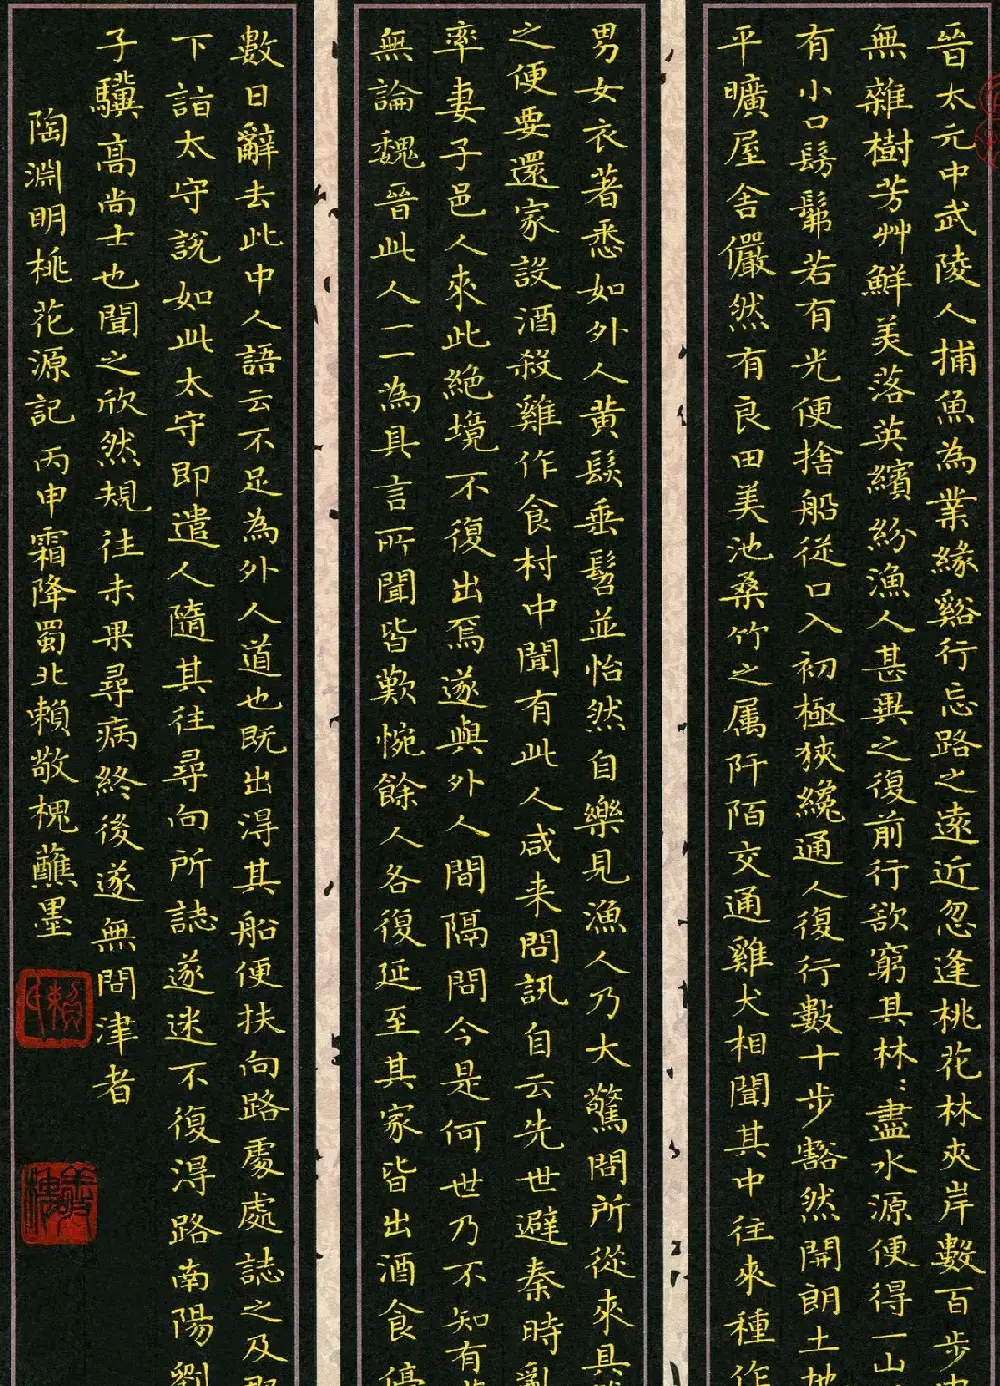 晉太元中武陵人捕魚為業緣谿行忘路之遠近忽逢桃花林夾岸數百步中
無雜樹芳艸鮮美落英繽紛漁人甚異之復前行欲窮其林〻盡水源便得一山
有小口髣髴若有光便捨船從口入初極狹纔通人復行數十步豁然開朗土地
平曠屋舍儼然有良田美池桑竹之属阡陌交通雞犬相聞其中往來種作
男女衣著悉如外人黃髮垂髫並怡然自樂見漁人乃大驚問所從來具
之便要還家設酒殺雞作食村中聞有此人咸来問訊自云先世避秦時亂
率妻子邑人來此絕境不復出焉遂與外人間隔問今是何世乃不知有
無論魏晉此人一一為具言所聞皆歎惋餘人各復延至其家皆出酒食停
數日辭去此中人語云不足為外人道也既出得其船便扶向路處處誌之及郡
下詣太守說如此太守即遣人隨其往尋向所誌遂迷不復得路南陽劉
子驥高尚士也聞之欣然規往未果尋病終後遂無問津者
陶淵明桃花源記丙申霜降蜀北賴敬槐蘸墨
賴氏
敬槐